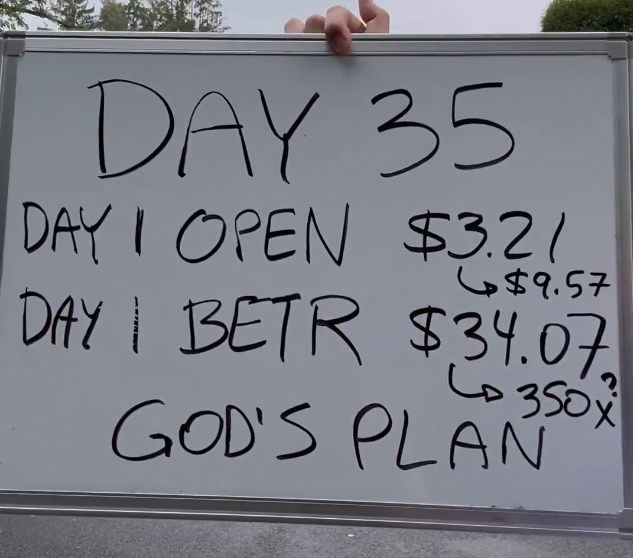 DAY 35
DAY 1 OPEN $3.21
↳ $9.57
DAY 1 BETR $34.07
↳ 350x?
GOD'S PLAN